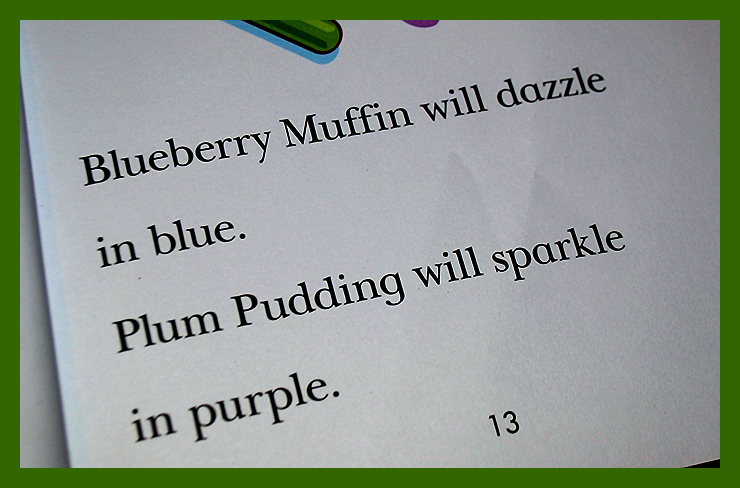 Blueberry Muffin will dazzle
in blue.
Plum Pudding will sparkle
in purple.
13